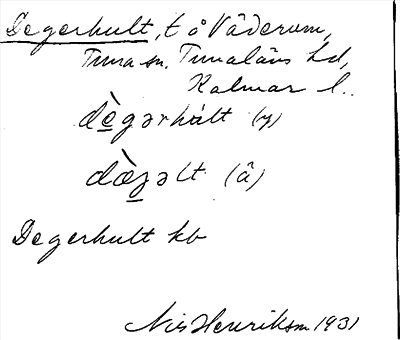 Degerhult, t å Våderum,
Tuna sn. Tunaläns hd,
Kalmar l..
dè̱gərhált (y)
dæ̀gəlt (ä)
Degerhult kb
Nils Henriksson 1931